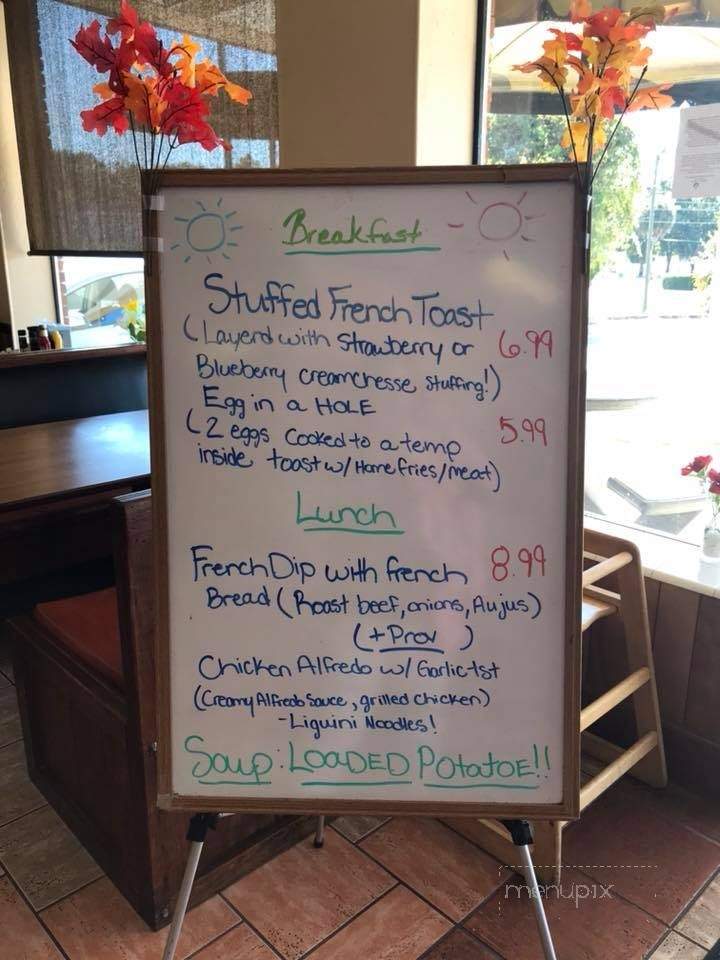 Breakfast
Stuffed French Toast
(Layerd with Strawberry or 6.99
Blueberry creamchesse stuffing!)
Egg in a HOLE
(2 eggs cooked to a temp 5.99
inside toast w/ Home fries/meat)
Lunch
French Dip with french 8.99
Bread (Roast beef, onions, Aujus)
(+Prov)
Chicken Alfredo w/ Garlic tst
(Creamy Alfredo Sauce, grilled chicken)
-Liguini Noodles!
Soup: LOADED POtatOE!!
menupix